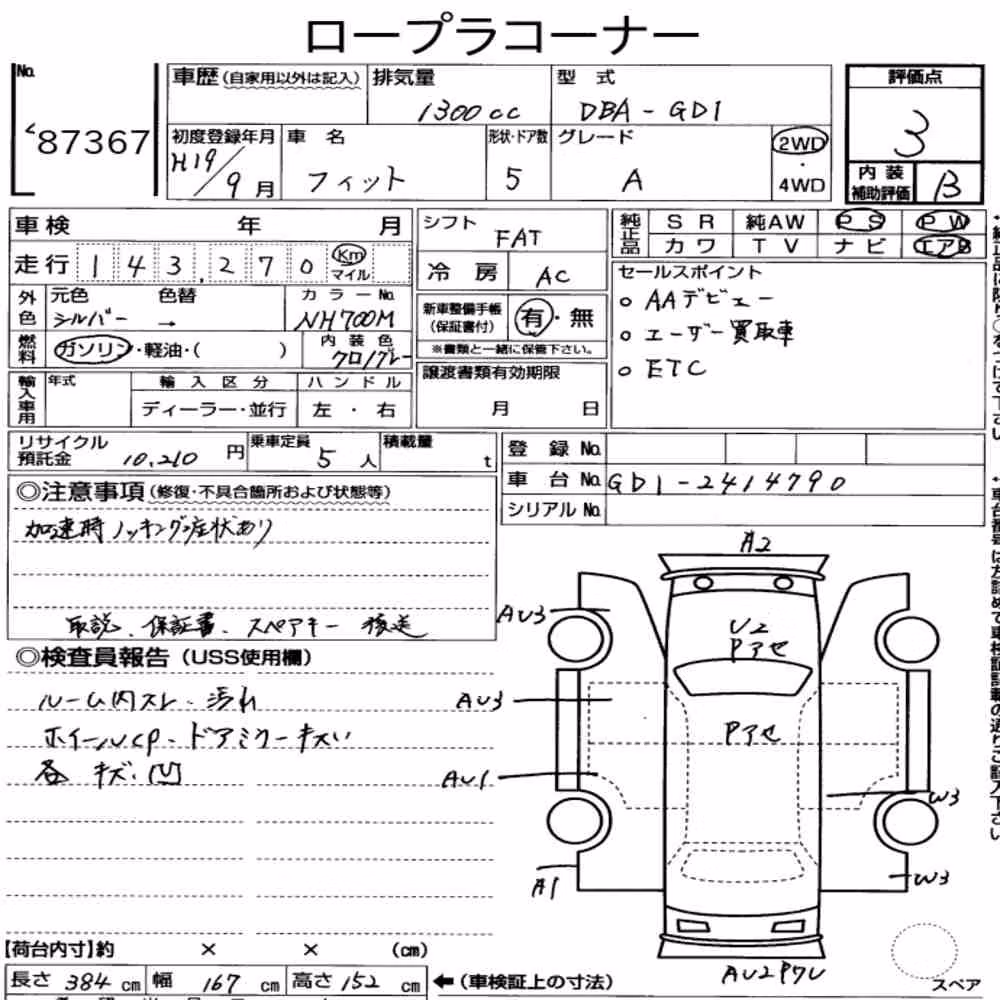 ロープラコーナー
No.
87367
車歴 (自家用以外は記入)
排気量
1300cc
型式
DBA-GD1
評価点
3
内装補助評価
B
初度登録年月
H19/9月
車名
フィット
形状・ドア数
5
グレード
A
2WD
・
4WD
車検 年 月
走行 143,270 Km マイル
シフト
FAT
冷房
AC
純正品
SR 純AW PS PW
カワ TV ナビ エアB
外色
元色 色替 カラーNo.
シルバー → NH700M
燃料
ガソリン・軽油・( )
内装色
クロ/グレー
新車整備手帳
(保証書付)
有・無
※書類と一緒に保管下さい。
セールスポイント
○ AAデビュー
○ ユーザー買取車
○ ETC
輸入車用
年式 輸入区分 ハンドル
ディーラー・並行 左・右
譲渡書類有効期限
月 日
リサイクル預託金
10,210円
乗車定員
5人
積載量
t
登録No.
車台No.
GD1-2414790
シリアルNo.
◎注意事項 (修復・不具合箇所および状態等)
加速時ノッキング症状あり
取説、保証書、スペアキー 後送
◎検査員報告 (USS使用欄)
ルーム内スレ・汚れ
ホイールCP・ドアミラーキズ
各キズ・凹
A2
AU3
U2
Pアセ
AU3
Pアセ
AU1
W3
A1
W3
AU2P7U
スペア
【荷台内寸】約 × × (cm)
長さ 384 cm 幅 167 cm 高さ 152 cm ←(車検証上の寸法)